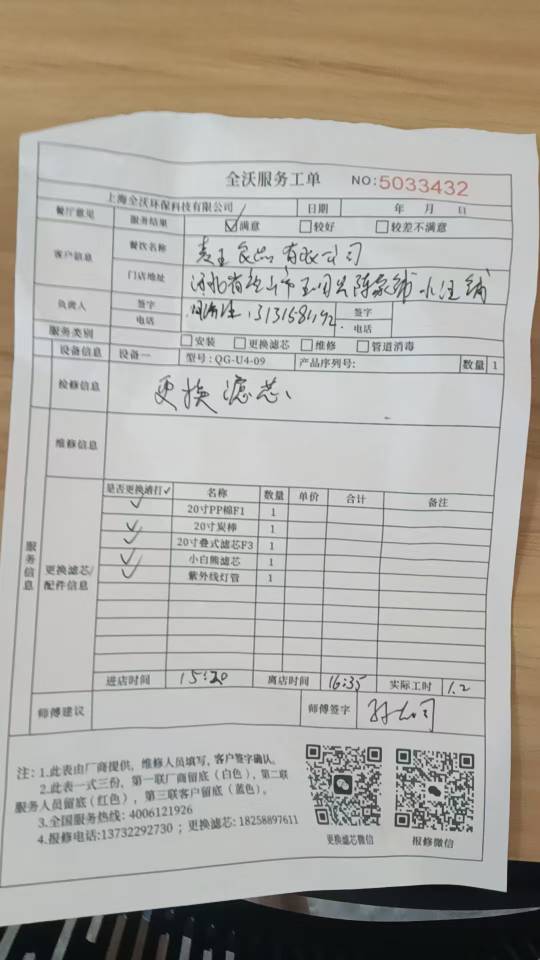 全沃服务工单 NO:5033432
上海全沃环保科技有限公司 日期 年 月 日
餐厅意见 服务结果 ☑满意 □较好 □较差不满意
客户信息 餐饮名称 食品有限公司
门店地址 河北省 市玉田县陈家铺
负责人 签字 签字
电话 13131581192 电话
服务类别 □安装 □更换滤芯 □维修 □管道消毒
设备信息 设备一 型号:QG-U4-09 产品序列号: 数量 1
检修信息 更换滤芯
维修信息
服务信息
更换滤芯/配件信息
是否更换请打✓ 名称 数量 单价 合计 备注
✓ 20寸PP棉F1 1
✓ 20寸炭棒 1
✓ 20寸叠式滤芯F3 1
✓ 小白熊滤芯 1
✓ 紫外线灯管 1
进店时间 15:20 离店时间 16:35 实际工时 1.2
师傅建议 师傅签字
注:1.此表由厂商提供,维修人员填写,客户签字确认。
2.此表一式三份,第一联厂商留底(白色),第二联
服务人员留底(红色),第三联客户留底(蓝色)。
3.全国服务热线: 4006121926
4.报修电话:13732292730 ;更换滤芯: 18258897611
更换滤芯微信 报修微信